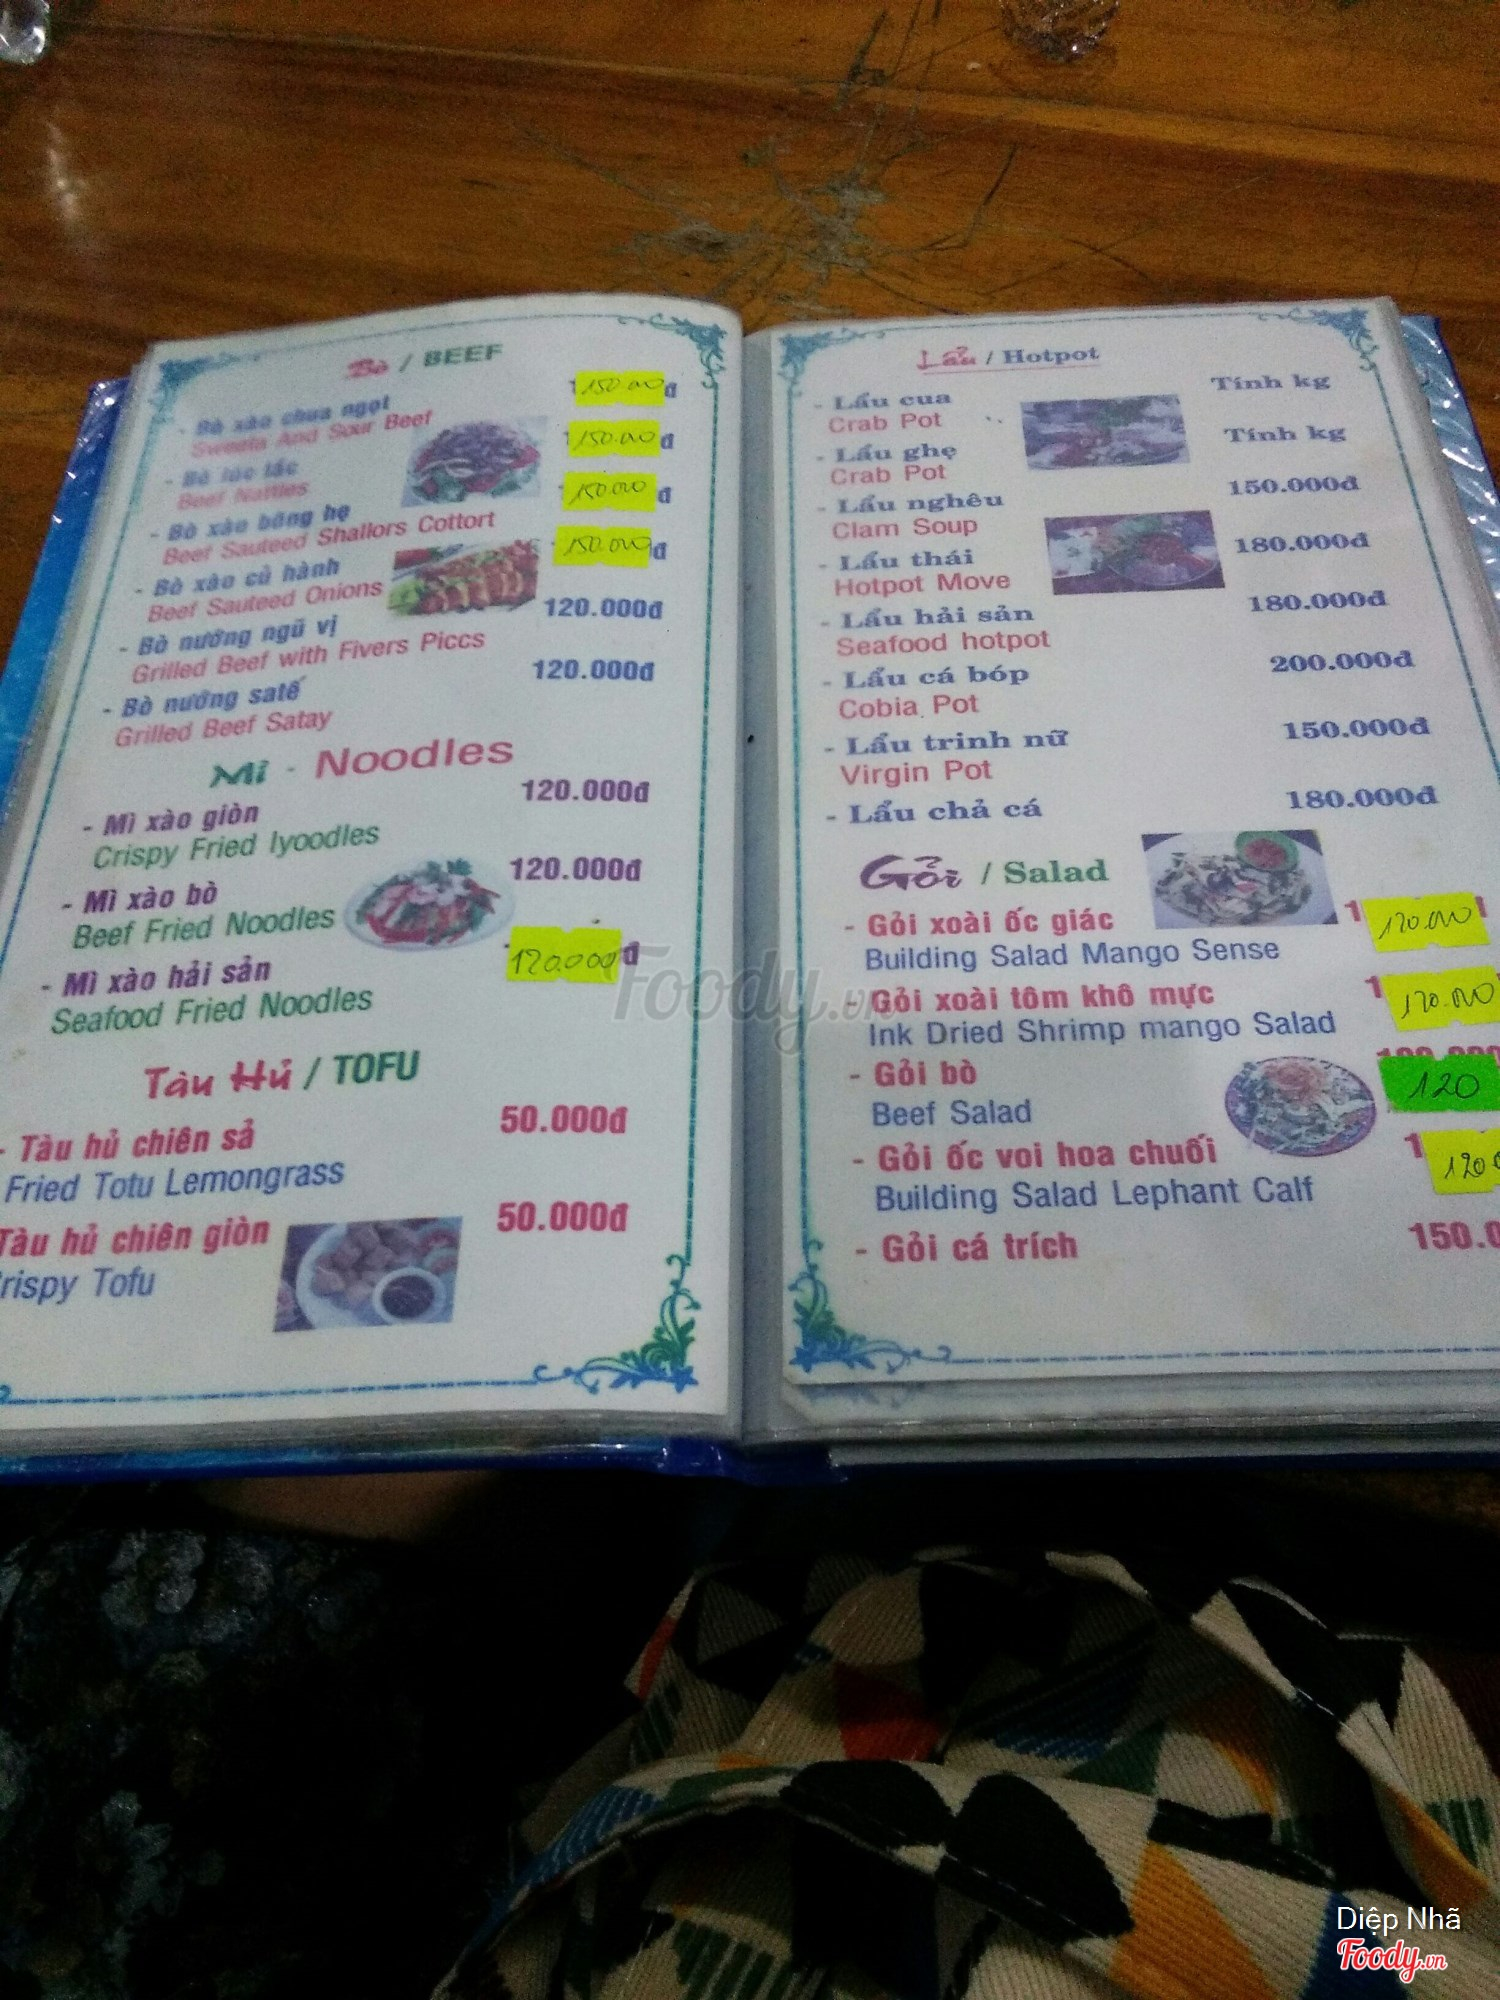 Bò / BEEF
- Bò xào chua ngọt
150.000đ
Sweeta And Sour Beef
- Bò lúc lắc
150.000đ
Beef Nattles
- Bò xào bông hẹ
150.000đ
Beef Sauteed Shallors Cottort
- Bò xào củ hành
150.000đ
Beef Sauteed Onions
- Bò nướng ngũ vị
120.000đ
Grilled Beef with Fivers Piccs
- Bò nướng satế
120.000đ
Grilled Beef Satay
Mì - Noodles
- Mì xào giòn
120.000đ
Crispy Fried Iyoodles
- Mì xào bò
120.000đ
Beef Fried Noodles
- Mì xào hải sản
120.000đ
Seafood Fried Noodles
Tàu Hủ / TOFU
- Tàu hủ chiên sả
50.000đ
Fried Totu Lemongrass
Tàu hủ chiên giòn
50.000đ
rispy Tofu
Lẩu / Hotpot
- Lẩu cua
Tính kg
Crab Pot
- Lẩu ghẹ
Tính kg
Crab Pot
- Lẩu nghêu
150.000đ
Clam Soup
- Lẩu thái
180.000đ
Hotpot Move
- Lẩu hải sản
180.000đ
Seafood hotpot
- Lẩu cá bóp
200.000đ
Cobia Pot
- Lẩu trinh nữ
150.000đ
Virgin Pot
- Lẩu chả cá
180.000đ
Gỏi / Salad
- Gỏi xoài ốc giác
120.000
Building Salad Mango Sense
- Gỏi xoài tôm khô mực
120.000
Ink Dried Shrimp mango Salad
- Gỏi bò
120
Beef Salad
- Gỏi ốc voi hoa chuối
120.0
Building Salad Lephant Calf
- Gỏi cá trích
150.0
Foody.vn
Diệp Nhã
Foody.vn